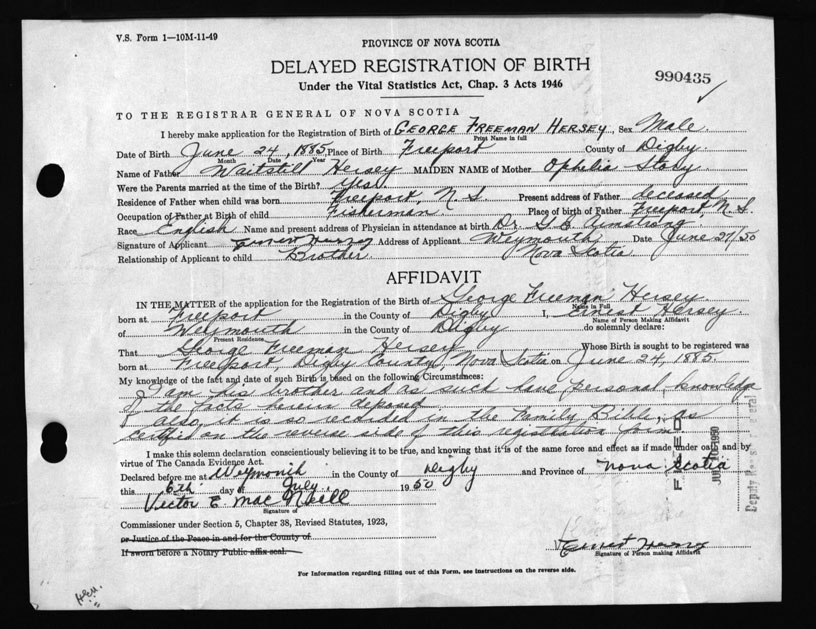 V.S. Form 1—10M-11-49
PROVINCE OF NOVA SCOTIA
DELAYED REGISTRATION OF BIRTH
990435
Under the Vital Statistics Act, Chap. 3 Acts 1946
TO THE REGISTRAR GENERAL OF NOVA SCOTIA
I hereby make application for the Registration of Birth of GEORGE FREEMAN HERSEY, Sex Male.
Print Name in full
Date of Birth June 24, 1885, Place of Birth Freeport County of Digby.
Month Date Year
Name of Father Waitstill Hersey MAIDEN NAME of Mother Ophelia Story
Were the Parents married at the time of Birth? yes.
Residence of Father when child was born Freeport, N. S. Present address of Father deceased
Occupation of Father at Birth of child Fisherman. Place of birth of Father Freeport, N. S.
Race English Name and present address of Physician in attendance at birth Dr.
Signature of Applicant Ernest Hersey Address of Applicant Weymouth, Date June 27/50
Relationship of Applicant to child Brother. Nova Scotia.
AFFIDAVIT
IN THE MATTER of the application for the Registration of the Birth of George Freeman Hersey
Name in Full
born at Freeport in the County of Digby I, Ernest Hersey.
Name of Person Making Affidavit
of Weymouth in the County of Digby do solemnly declare:
Present Residence
That George Freeman Hersey Whose Birth is sought to be registered was
born at Freeport, Digby County, Nova Scotia on June 24, 1885.
My knowledge of the fact and date of such Birth is based on the following Circumstances:
I am his brother and as such have personal knowledge
of the facts herein deposed
Also, it is so recorded in the Family Bible, as
certified on the reverse side of this registration form.
I make this solemn declaration conscientiously believing it to be true, and knowing that it is of the same force and effect as if made under oath and by
virtue of The Canada Evidence Act.
Declared before me at Weymouth in the County of Digby and Province of Nova Scotia
this 6th day of July, 1950
Victor E. Mac
Signature of
Commissioner under Section 5, Chapter 38, Revised Statutes, 1923,
or Justice of the Peace in and for the County of
If sworn before a Notary Public affix seal.
Ernest Hersey
Signature of Person making Affidavit
For Information regarding filling out of this Form, see instructions on the reverse side.
FILED
1950
Deputy